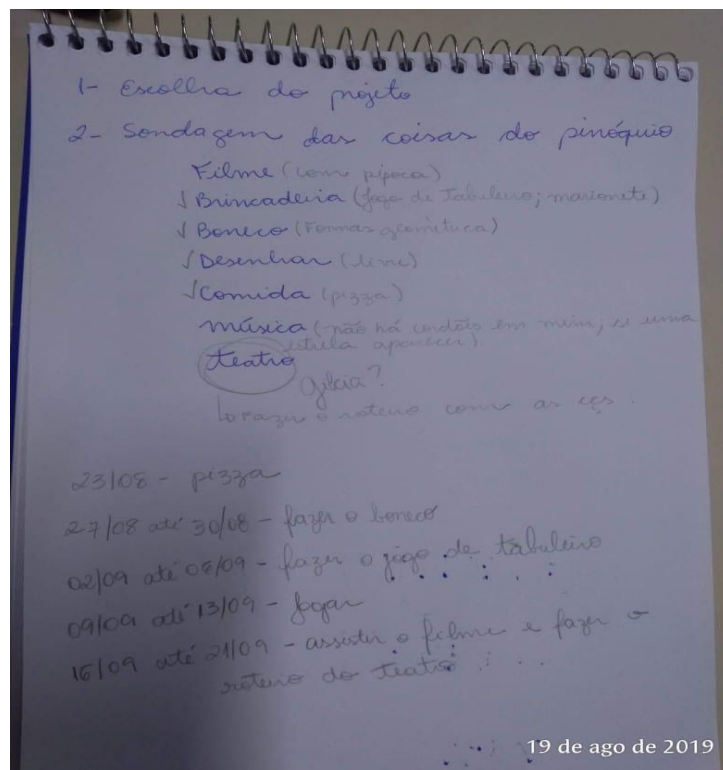 1- Escolha do projeto
2- Sondagem das coisas do pinóquio
Filme (com pipoca)
√ Brincadeira (jogo de Tabuleiro; marionete)
√ Boneco (Formas geométrica)
√ Desenhar (livre)
√ Comida (pizza)
música (não há cordões em mim, se uma
estrela aparecer).
teatro
fazer o roteiro com as cçs.
23/08 - pizza
27/08 até 30/08 - fazer o boneco
02/09 até 06/09 - fazer o jogo de tabuleiro
09/09 até 13/09 - jogar
16/09 até 21/09 - assistir o filme e fazer o
roteiro do teatro
19 de ago de 2019